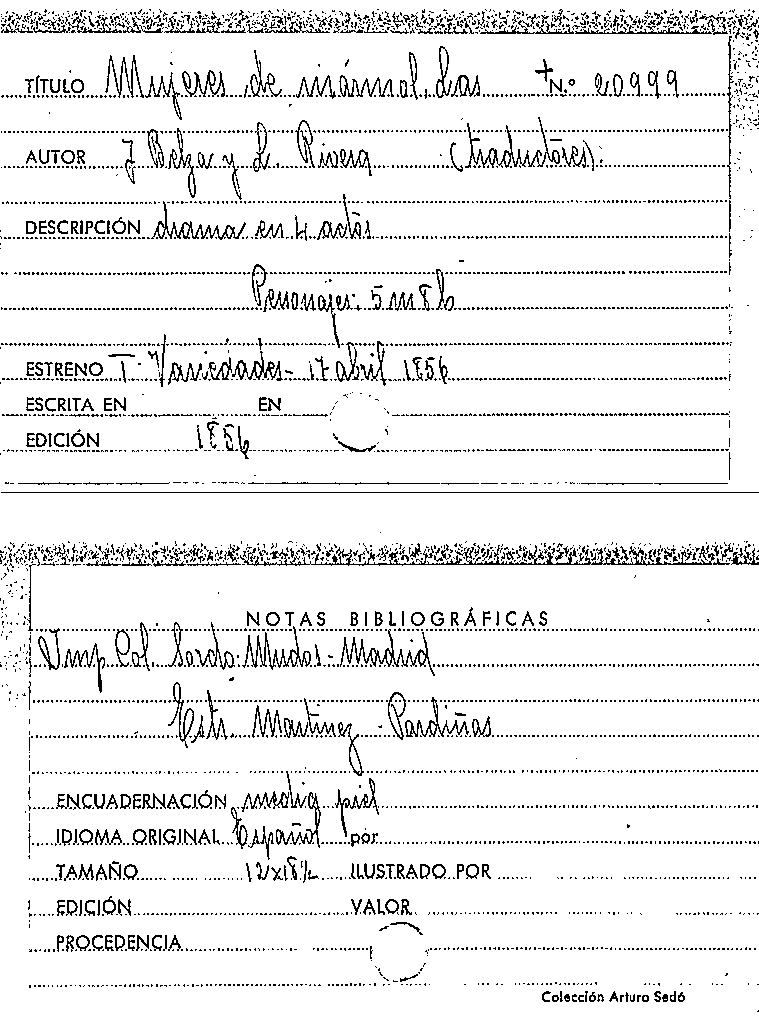 TÍTULO Mujeres de mármol, Las +N.º 20999
AUTOR J Belza y L. Rivera (traductores).
DESCRIPCIÓN drama en 4 actos
Personajes: 5 m 8 h
ESTRENO T. Variedades - 17 abril 1856
ESCRITA EN EN
EDICIÓN 1856
NOTAS BIBLIOGRÁFICAS
Imp. Col. Sordo-Mudos - Madrid
Estr. Martinez - Pardiñas
ENCUADERNACIÓN media piel
IDIOMA ORIGINAL Español por
TAMAÑO 12x18½ ILUSTRADO POR
EDICIÓN VALOR
PROCEDENCIA
Colección Arturo Sedó